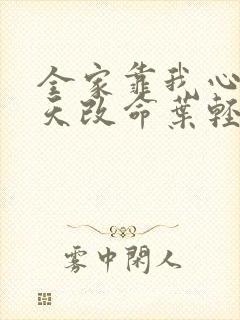 全家靠我心
天改命葉輕
雾中閑人